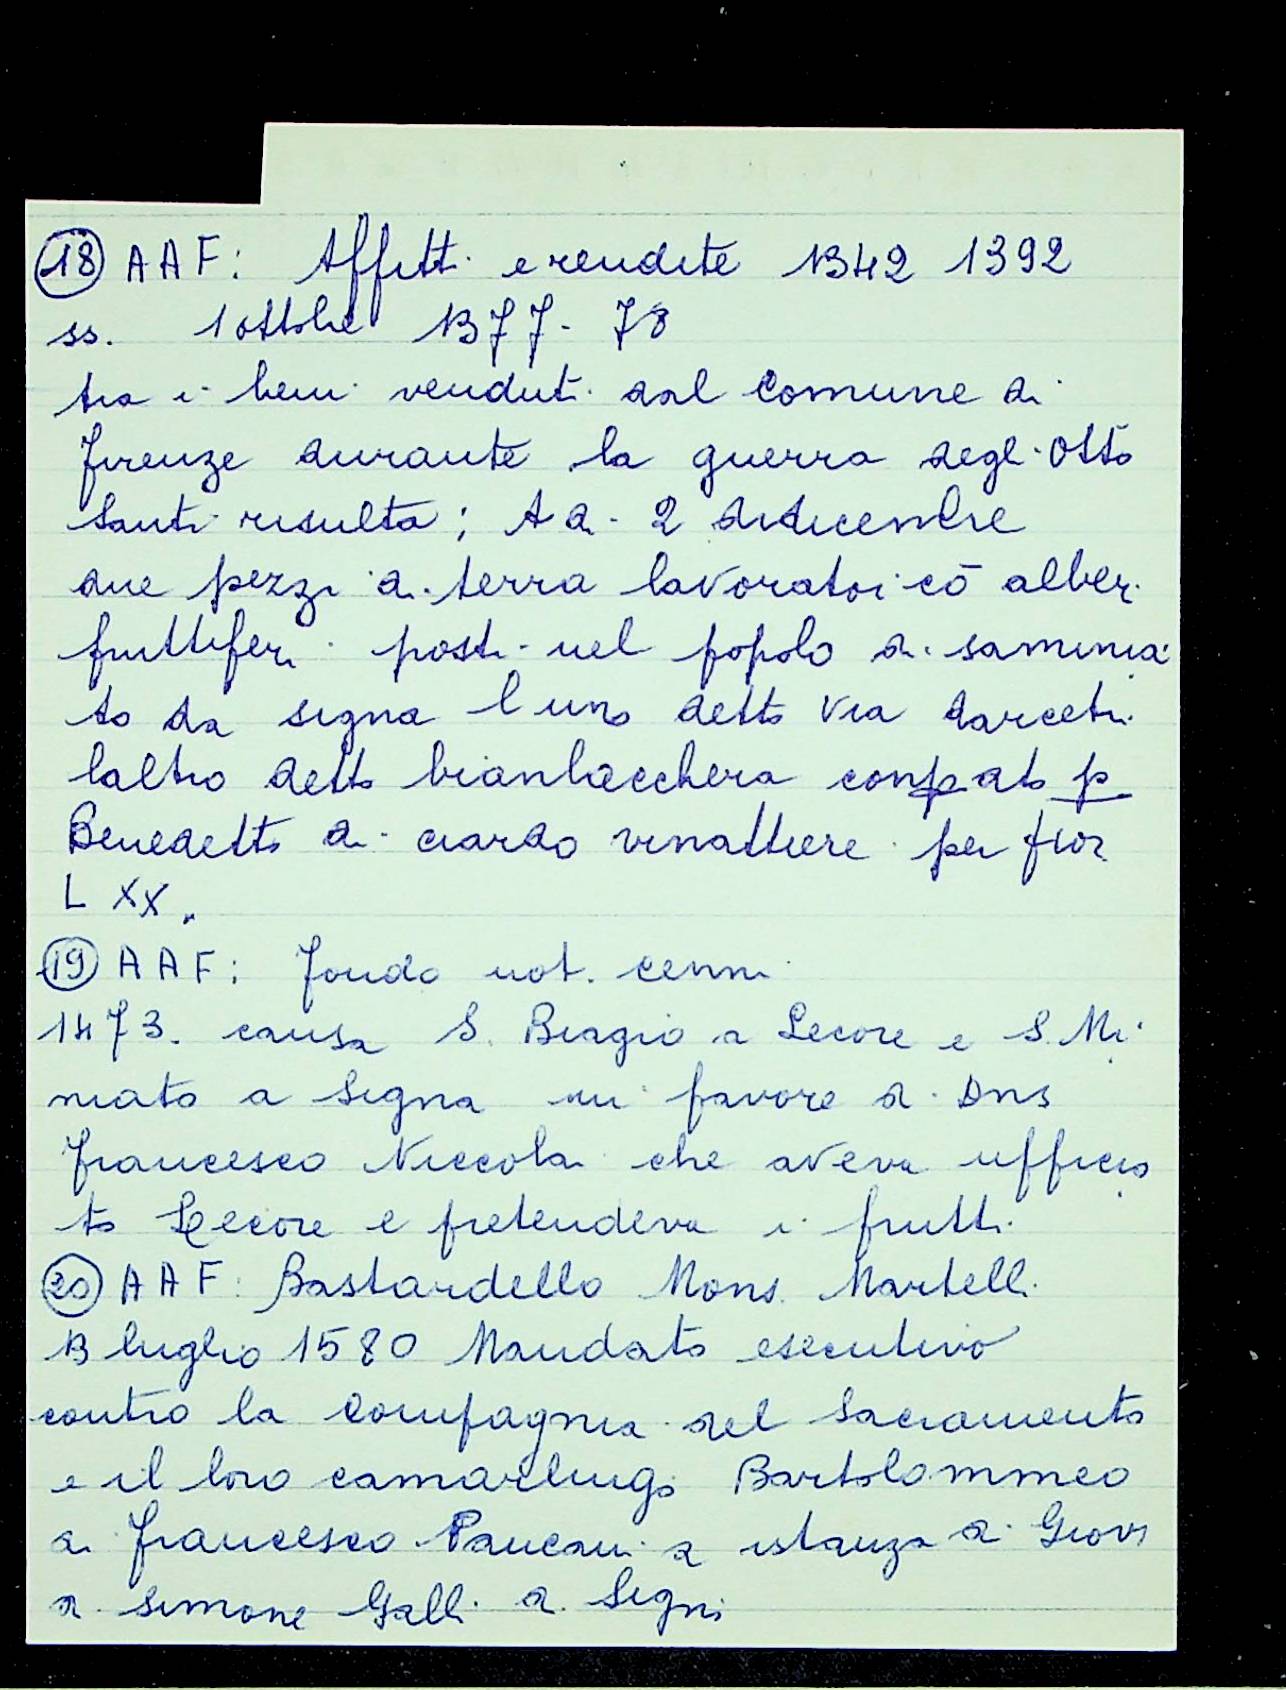 18 AAF: Affitti e rendite 1342 1392
ss. 1 ottobre 1377-78
tra i beni venduti dal Comune di
Firenze durante la guerra degli Otto
Santi risulta; A di 2 didicembre
due pezzi di terra lavoratoi cō alberi
fruttiferi posti nel popolo di saminia
to da signa luno detto via darcetri
laltro detto bianbacchera conpato p
Benedetto di ciardo vinattiere per fior
LXX.
19 AAF: Fondo not. cenni
1473. causa S. Biagio a Lecore e S. Mi
niato a Signa in favore di Dns
Francesco Niccolai che aveva ufficia
to Lecore e pretendeva i frutti
20 AAF: Bastardello Mons. Martelli
13 luglio 1580 Mandato esecutivo
contro la compagnia del Sacramento
e il loro camarlingo Bartolommeo
di Francesco Pancani a istanza di Giov
di simone Galli di Signi